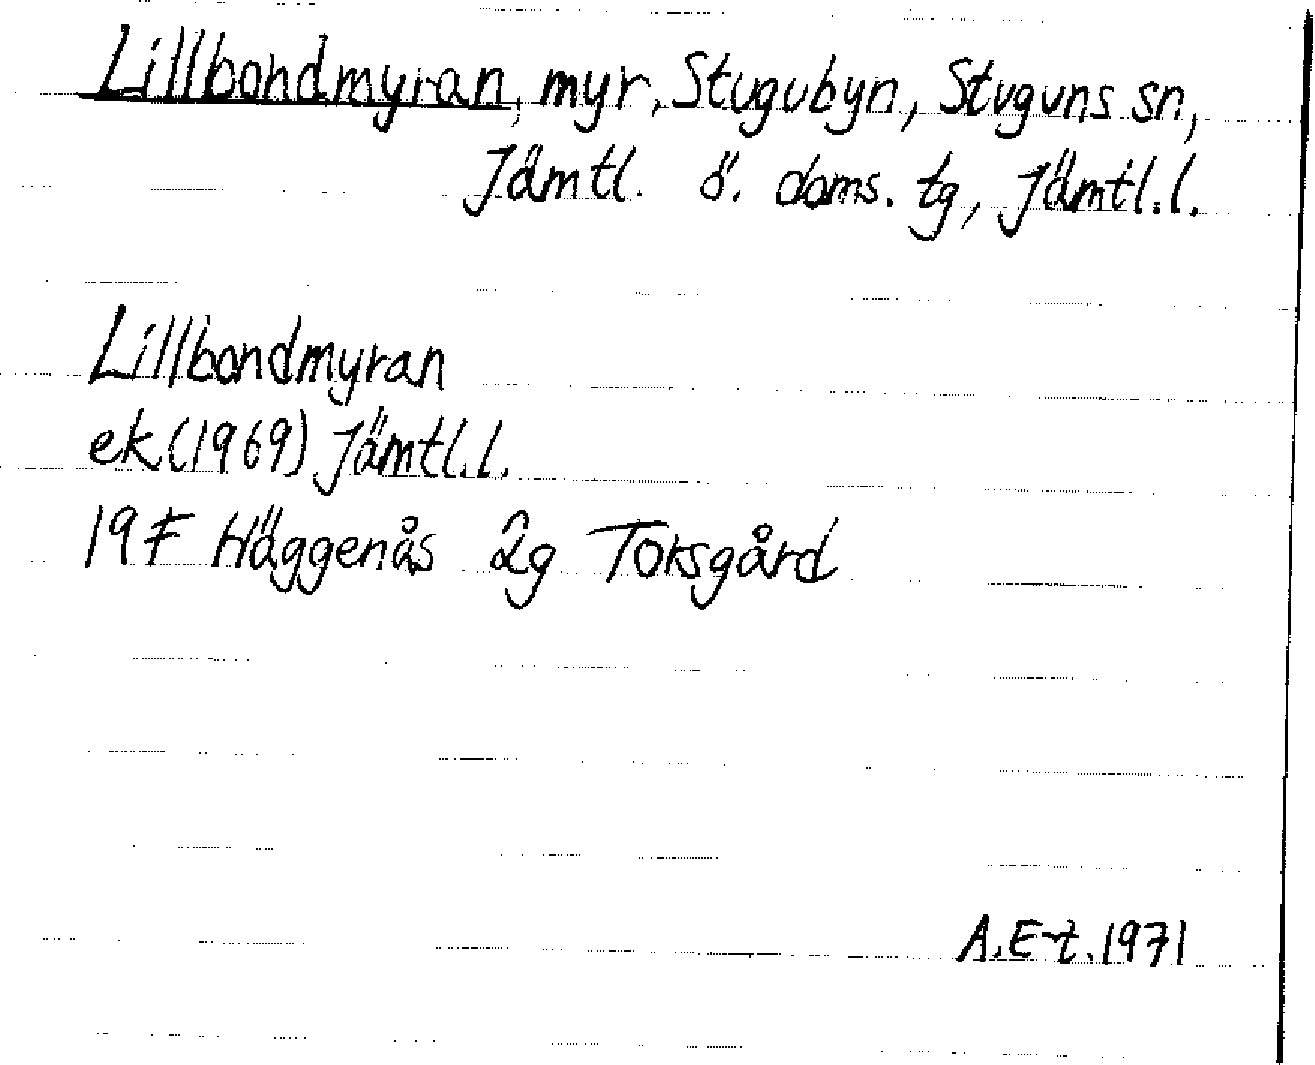 Lillbondmyran, myr, Stugubyn, Stuguns sn,
Jämtl. ö. doms. tg, Jämtl.l.
Lillbondmyran
ek (1969) Jämtl.l.
19 F Häggenås 2g Torsgård
A.E-t. 1971